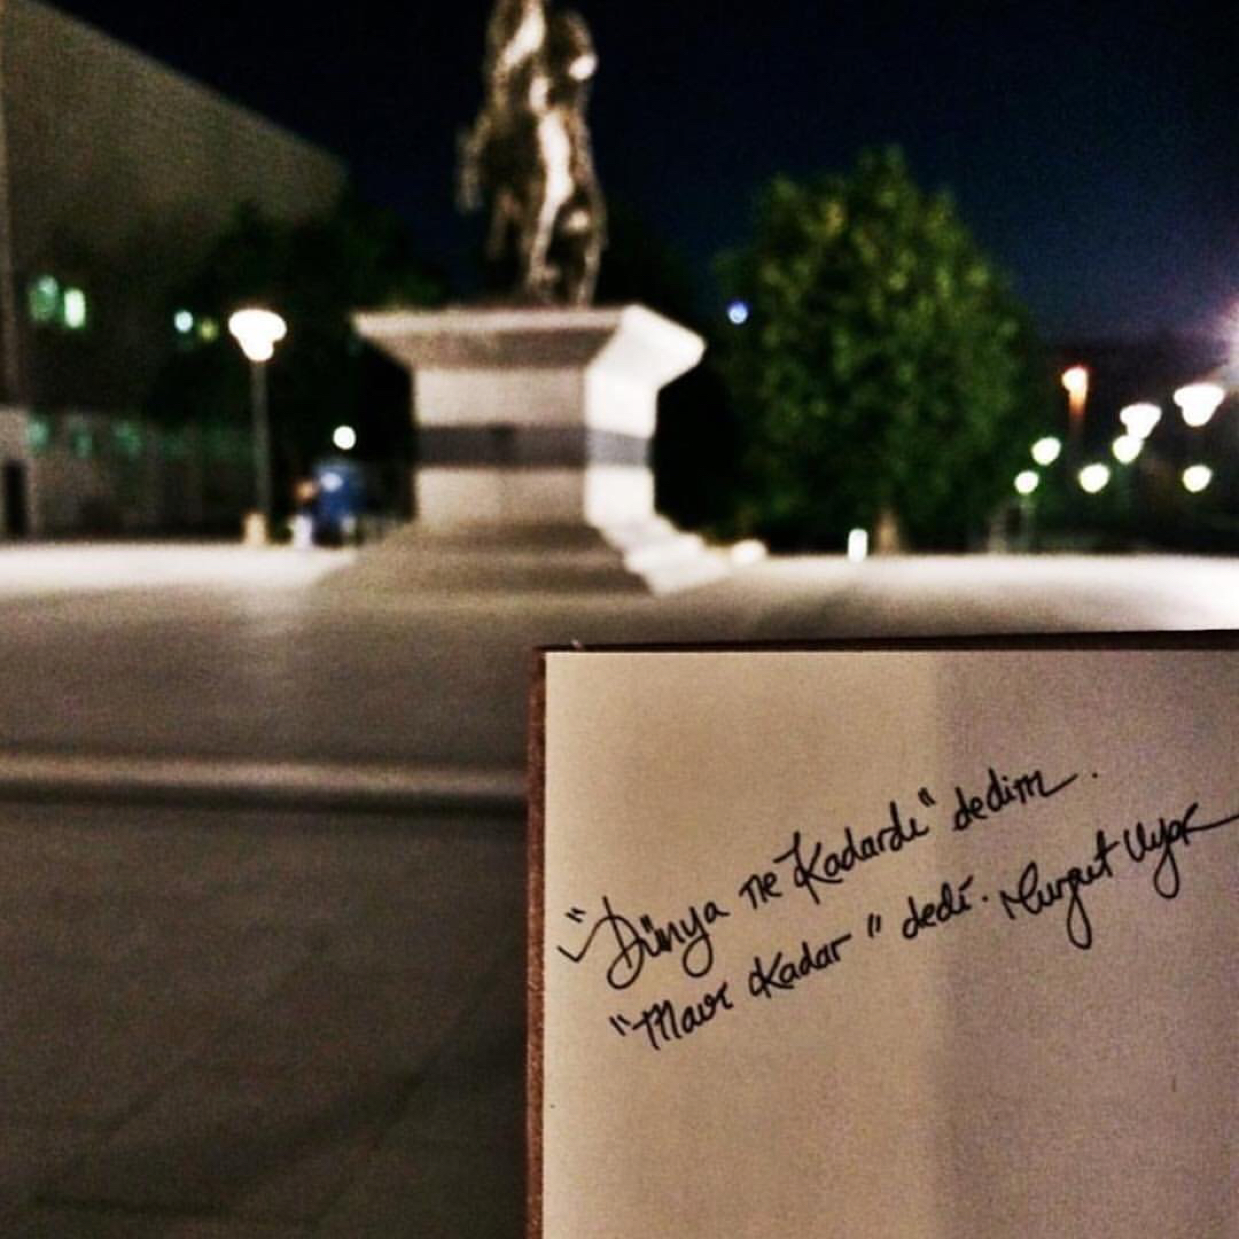 "Dünya ne Kadardı" dedim.
"Mavi Kadar" dedi. Turgut Uyar